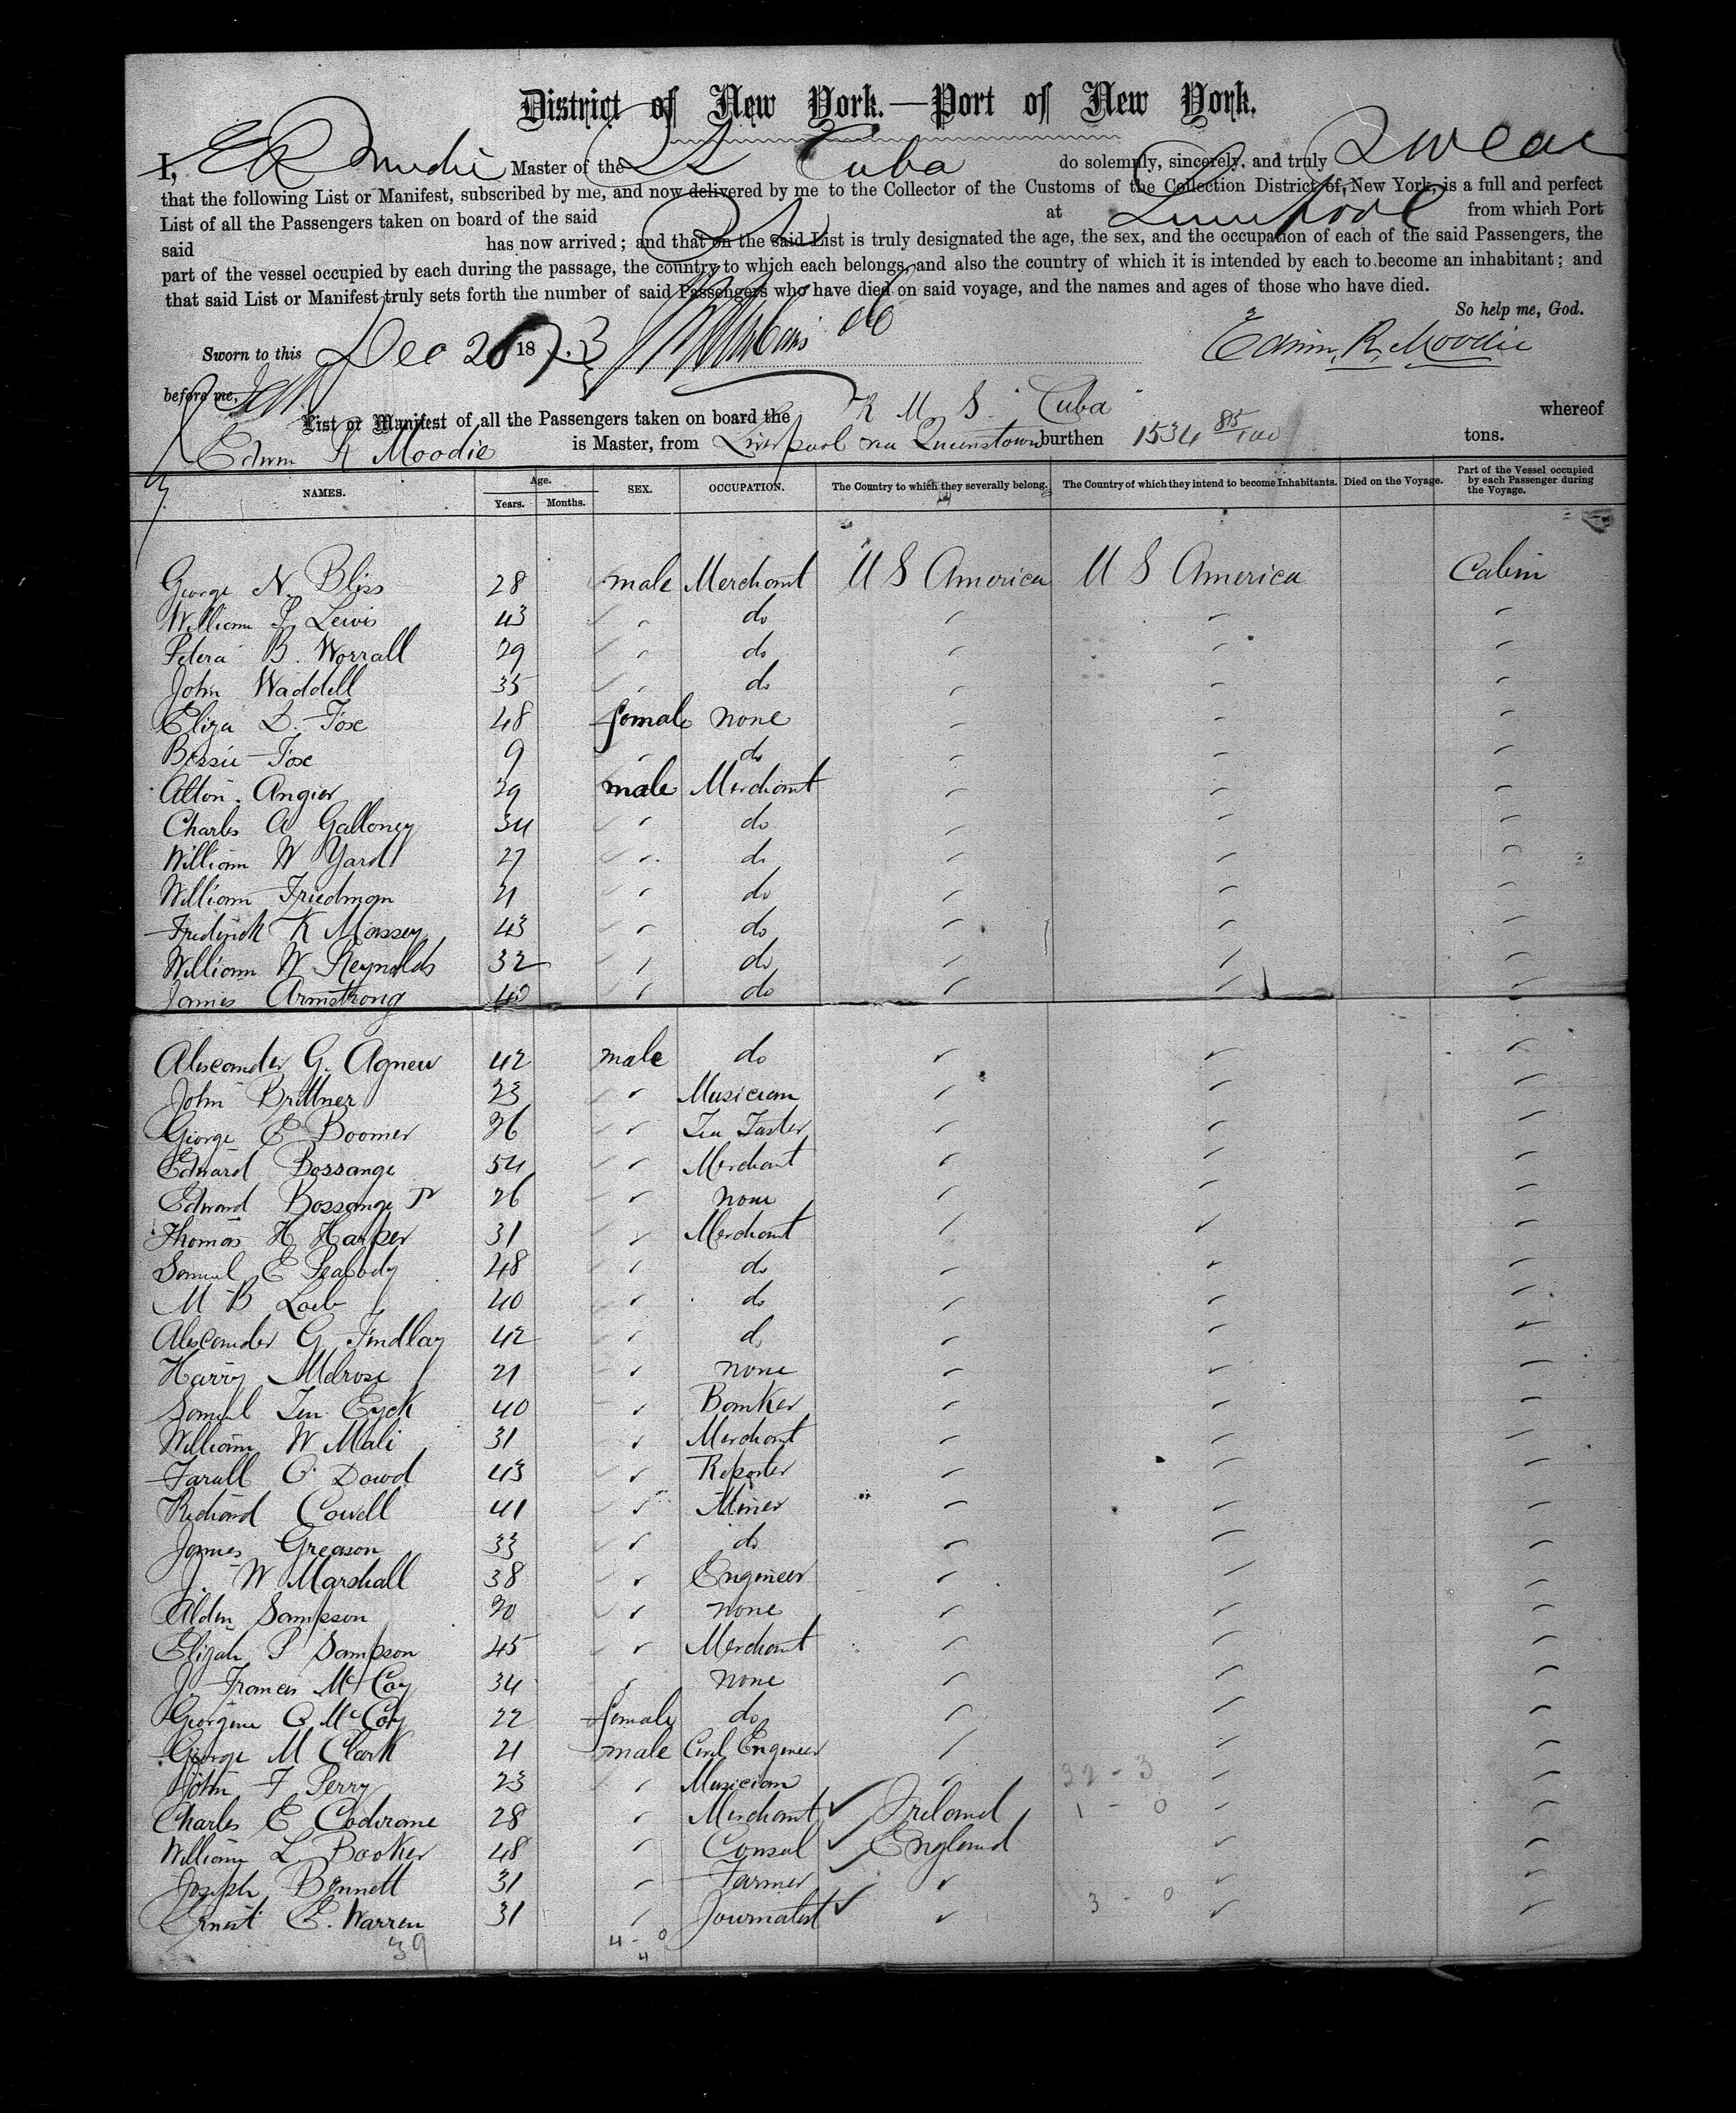 District of New York.—Port of New York.
I, E R Moodie Master of the SS Cuba do solemnly, sincerely, and truly Swear
that the following List or Manifest, subscribed by me, and now delivered by me to the Collector of the Customs of the Collection District of New York, is a full and perfect
List of all the Passengers taken on board of the said SS at Liverpool from which Port
said has now arrived; and that on the said List is truly designated the age, the sex, and the occupation of each of the said Passengers, the
part of the vessel occupied by each during the passage, the country to which each belongs, and also the country of which it is intended by each to become an inhabitant; and
that said List or Manifest truly sets forth the number of said Passengers who have died on said voyage, and the names and ages of those who have died.
So help me, God.
Sworn to this Dec 26 1873 Edwin R. Moodie
before me,
List or Manifest of all the Passengers taken on board the R M S Cuba whereof
Edwin R Moodie is Master, from Liverpool via Queenstown burthen 1534 85/100 tons.
NAMES. Age. Years. Months. SEX. OCCUPATION. The Country to which they severally belong. The Country of which they intend to become Inhabitants. Died on the Voyage. Part of the Vessel occupied by each Passenger during the Voyage.
George N. Bliss 28 male Merchant U S America U S America Cabin
William S. Lewis 43 " do
B. Worrall 29 " do
John Waddell 35 " do
Eliza D. Fox 48 female none
Bessie Fox 9 " do
Alton Angier 29 male Merchant
Charles A Galloney 34 " do
William W Yard 27 " do
William Friedman 21 " do
Frederick K Massey 43 " do
William W Reynolds 32 " do
James Armstrong 40 " do
Alexander G. Agnew 42 male do
John Brittner 23 " Musician
George E Boomer 36 " Tea Taster
Edward Bossange 54 " Merchant
Edward Bossange Jr 26 " none
Thomas H Harper 31 " Merchant
Samuel E Peabody 48 " do
M B Loeb 40 " do
Alexander G Findlay 42 " do
Harry Melrose 21 " none
Samuel Ten Eyck 40 " Banker
William W Mali 31 " Merchant
Farull O. Dowd 43 " Reporter
Richard Cowell 41 " Miner
James Greason 33 " do
J. W Marshall 38 " Engineer
Alden Sampson 20 " none
Elijah P Sampson 45 " Merchant
J. Frances McCoy 34 " none
Georgine C McCoy 22 female do
George M Clark 21 male Civil Engineer
John F Perry 23 " Musician 32 - 3
Charles E Cochrane 28 " Merchant Ireland 1 - 0
William L. Booker 48 " Consul England
Joseph Bennett 31 " Farmer
Ernest E. Warren 31 " Journalist 3 - 0
39 4 - 0
4